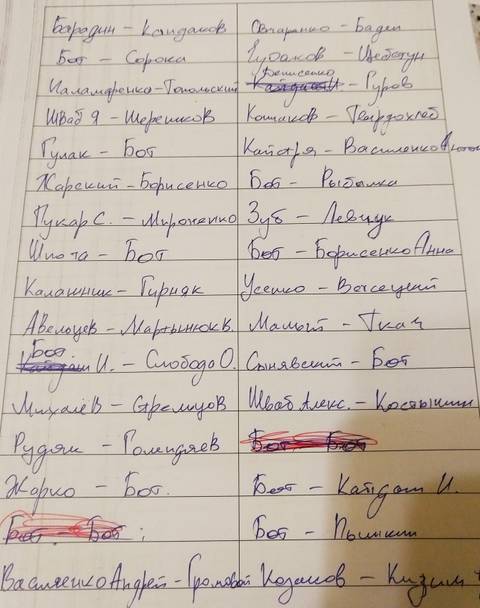 Барадин - Кандаков Овчаренко - Баден
Бот - Сорока Чубаков - Щеботун
Паламаренко - Топольский Денисенко - Гуров
Шваб Я - Шерешков Кошаков - Твердохлеб
Гулак - Бот Кайстря - Василенко
Жарский - Борисенко Бот - Рыбалка
Пукар С. - Мироненко Зуб - Левчук
Шпота - Бот Бот - Борисенко Анна
Калашник - Гирняк Усенко - Высоцкий
Авельцев - Мартынюк В. Малый - Ткач
Бот. - Слобода О. Сынявский - Бот
Михалёв - Стрельцов Шваб Алекс. - Костышин
Рудяк - Голендяев Бот - Бот
Жарко - Бот. Бот - Кайдаш И.
Бот - Бот; Бот - Пышкин
Василенко Андрей - Громовой Козаков - Кизим